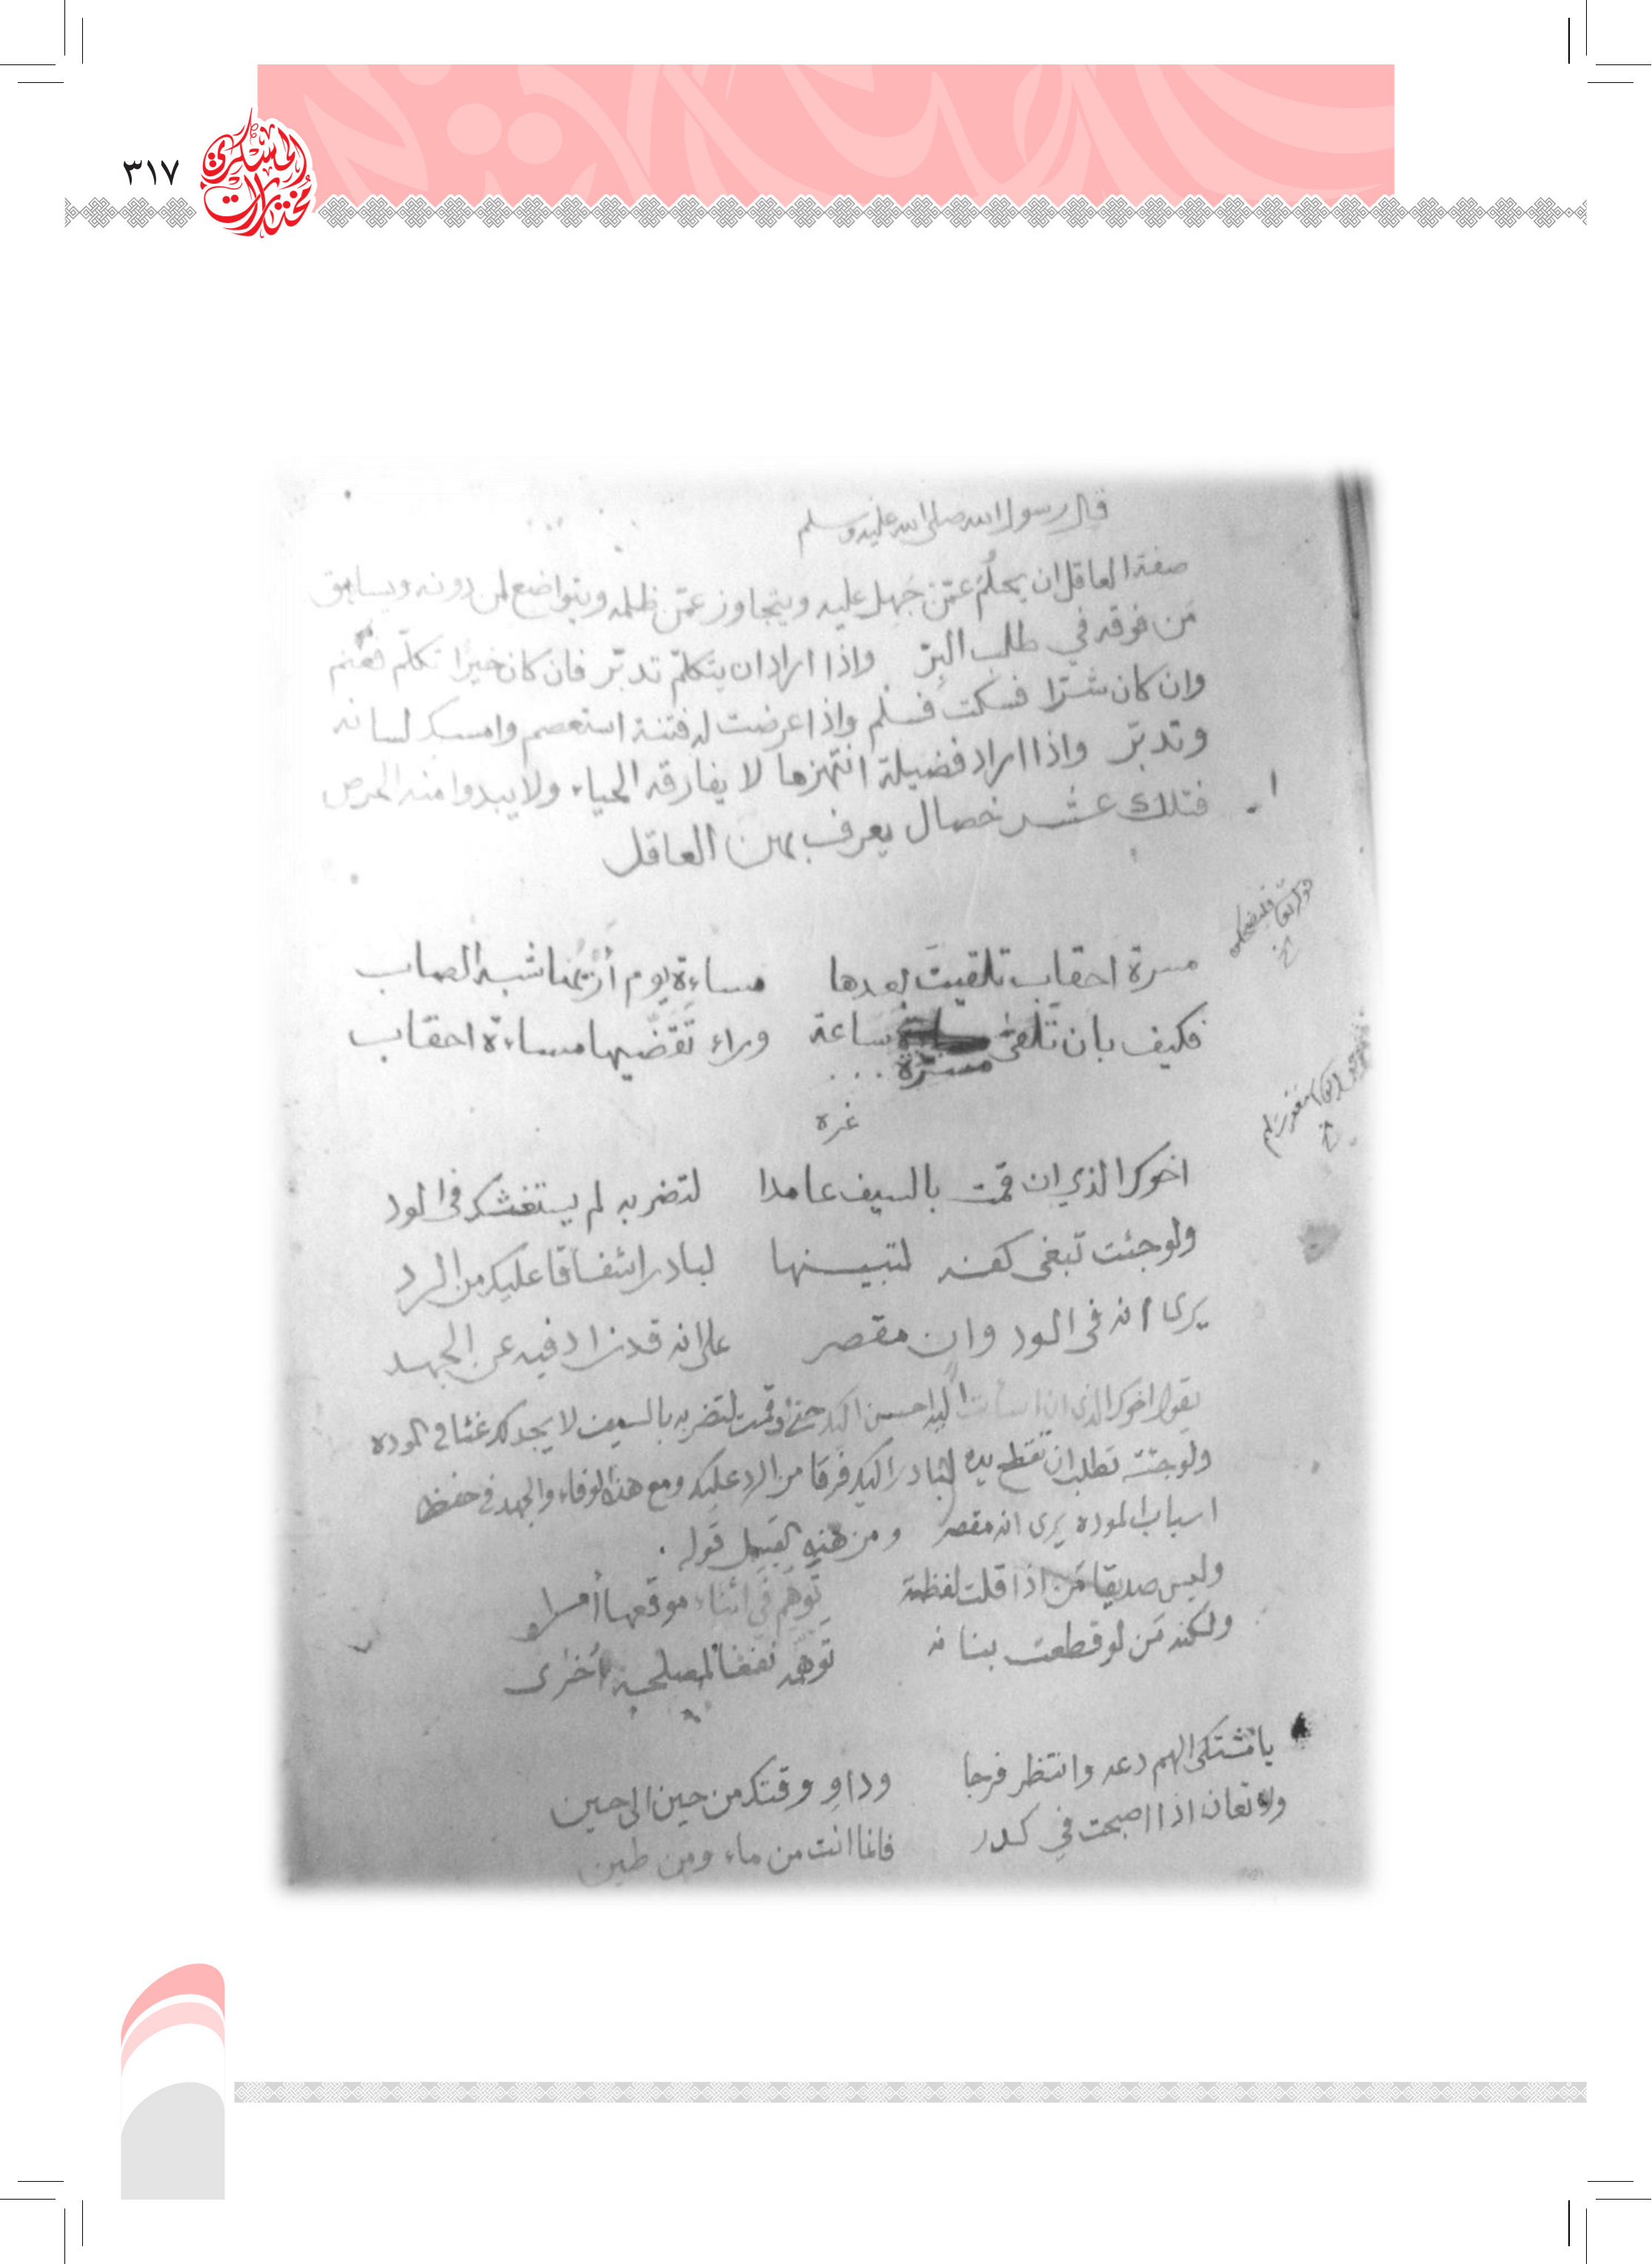 ٣١٧
مختارات العسكري
قال رسول الله صلى الله عليه وسلم
صفة العاقل ان يحلُم عمّن جَهِل عليه ويتجاوز عمّن ظلمه ويتواضع لمن دونه ويسابق
مَن فوقه في طلب البرّ واذا اراد ان يتكلمّ تدبّر فان كان خيرًا تكلّم فغنم
وان كان شرّا فسكت فسلم واذا عرضت له فتنة استعصم وامسك لسانه
وتدبّر واذا اراد فضيلة انتهزها لا يفارقه الحياء ولا يبدوا منه الحرص
فتلك عشر خصال يعرف بهن العاقل
مسرة احقاب تلقيتَ بعدها مساءة يوم أريُها شبه الصاب
فكيف بان تَلقى مسرّة ساعة وراء تَقَضّيها مساءة احقاب
غره
اخوك الذي ان قمت بالسيف عامدا لتضربه لم يستغشك في الود
ولو جئت تبغي كفه لتبينها لبادر اشفاقا عليك من الرد
يرى انه في الود وان مقصر على انه قد زاد فيه عن الجهد
يقول اخوك الذي ان اسأت اليه احسن اليك حتى لو قمت لتضربه بالسيف لا يجدك غشا في الموده
ولو جئته تطلب ان تقطع يده لبادر اليك فرقا من الرد عليك ومع هذا الوفاء والجهد في حفظ
اسباب الموده يرى انه مقصر ومن هذه القبيل قوله .
وليس صديقا مَن اذا قلت لفظة توهم في اثناء موقعها أمرا
ولكنه مَن لو قطعت بنانه توهّمه نفعا لمصلحة أخرى
يا مشتكي الهم دعه وانتظر فرجا وداوِ وقتك من حين الى حين
ولا تعاند اذا اصبحت في كدر فانما انت من ماء ومن طين